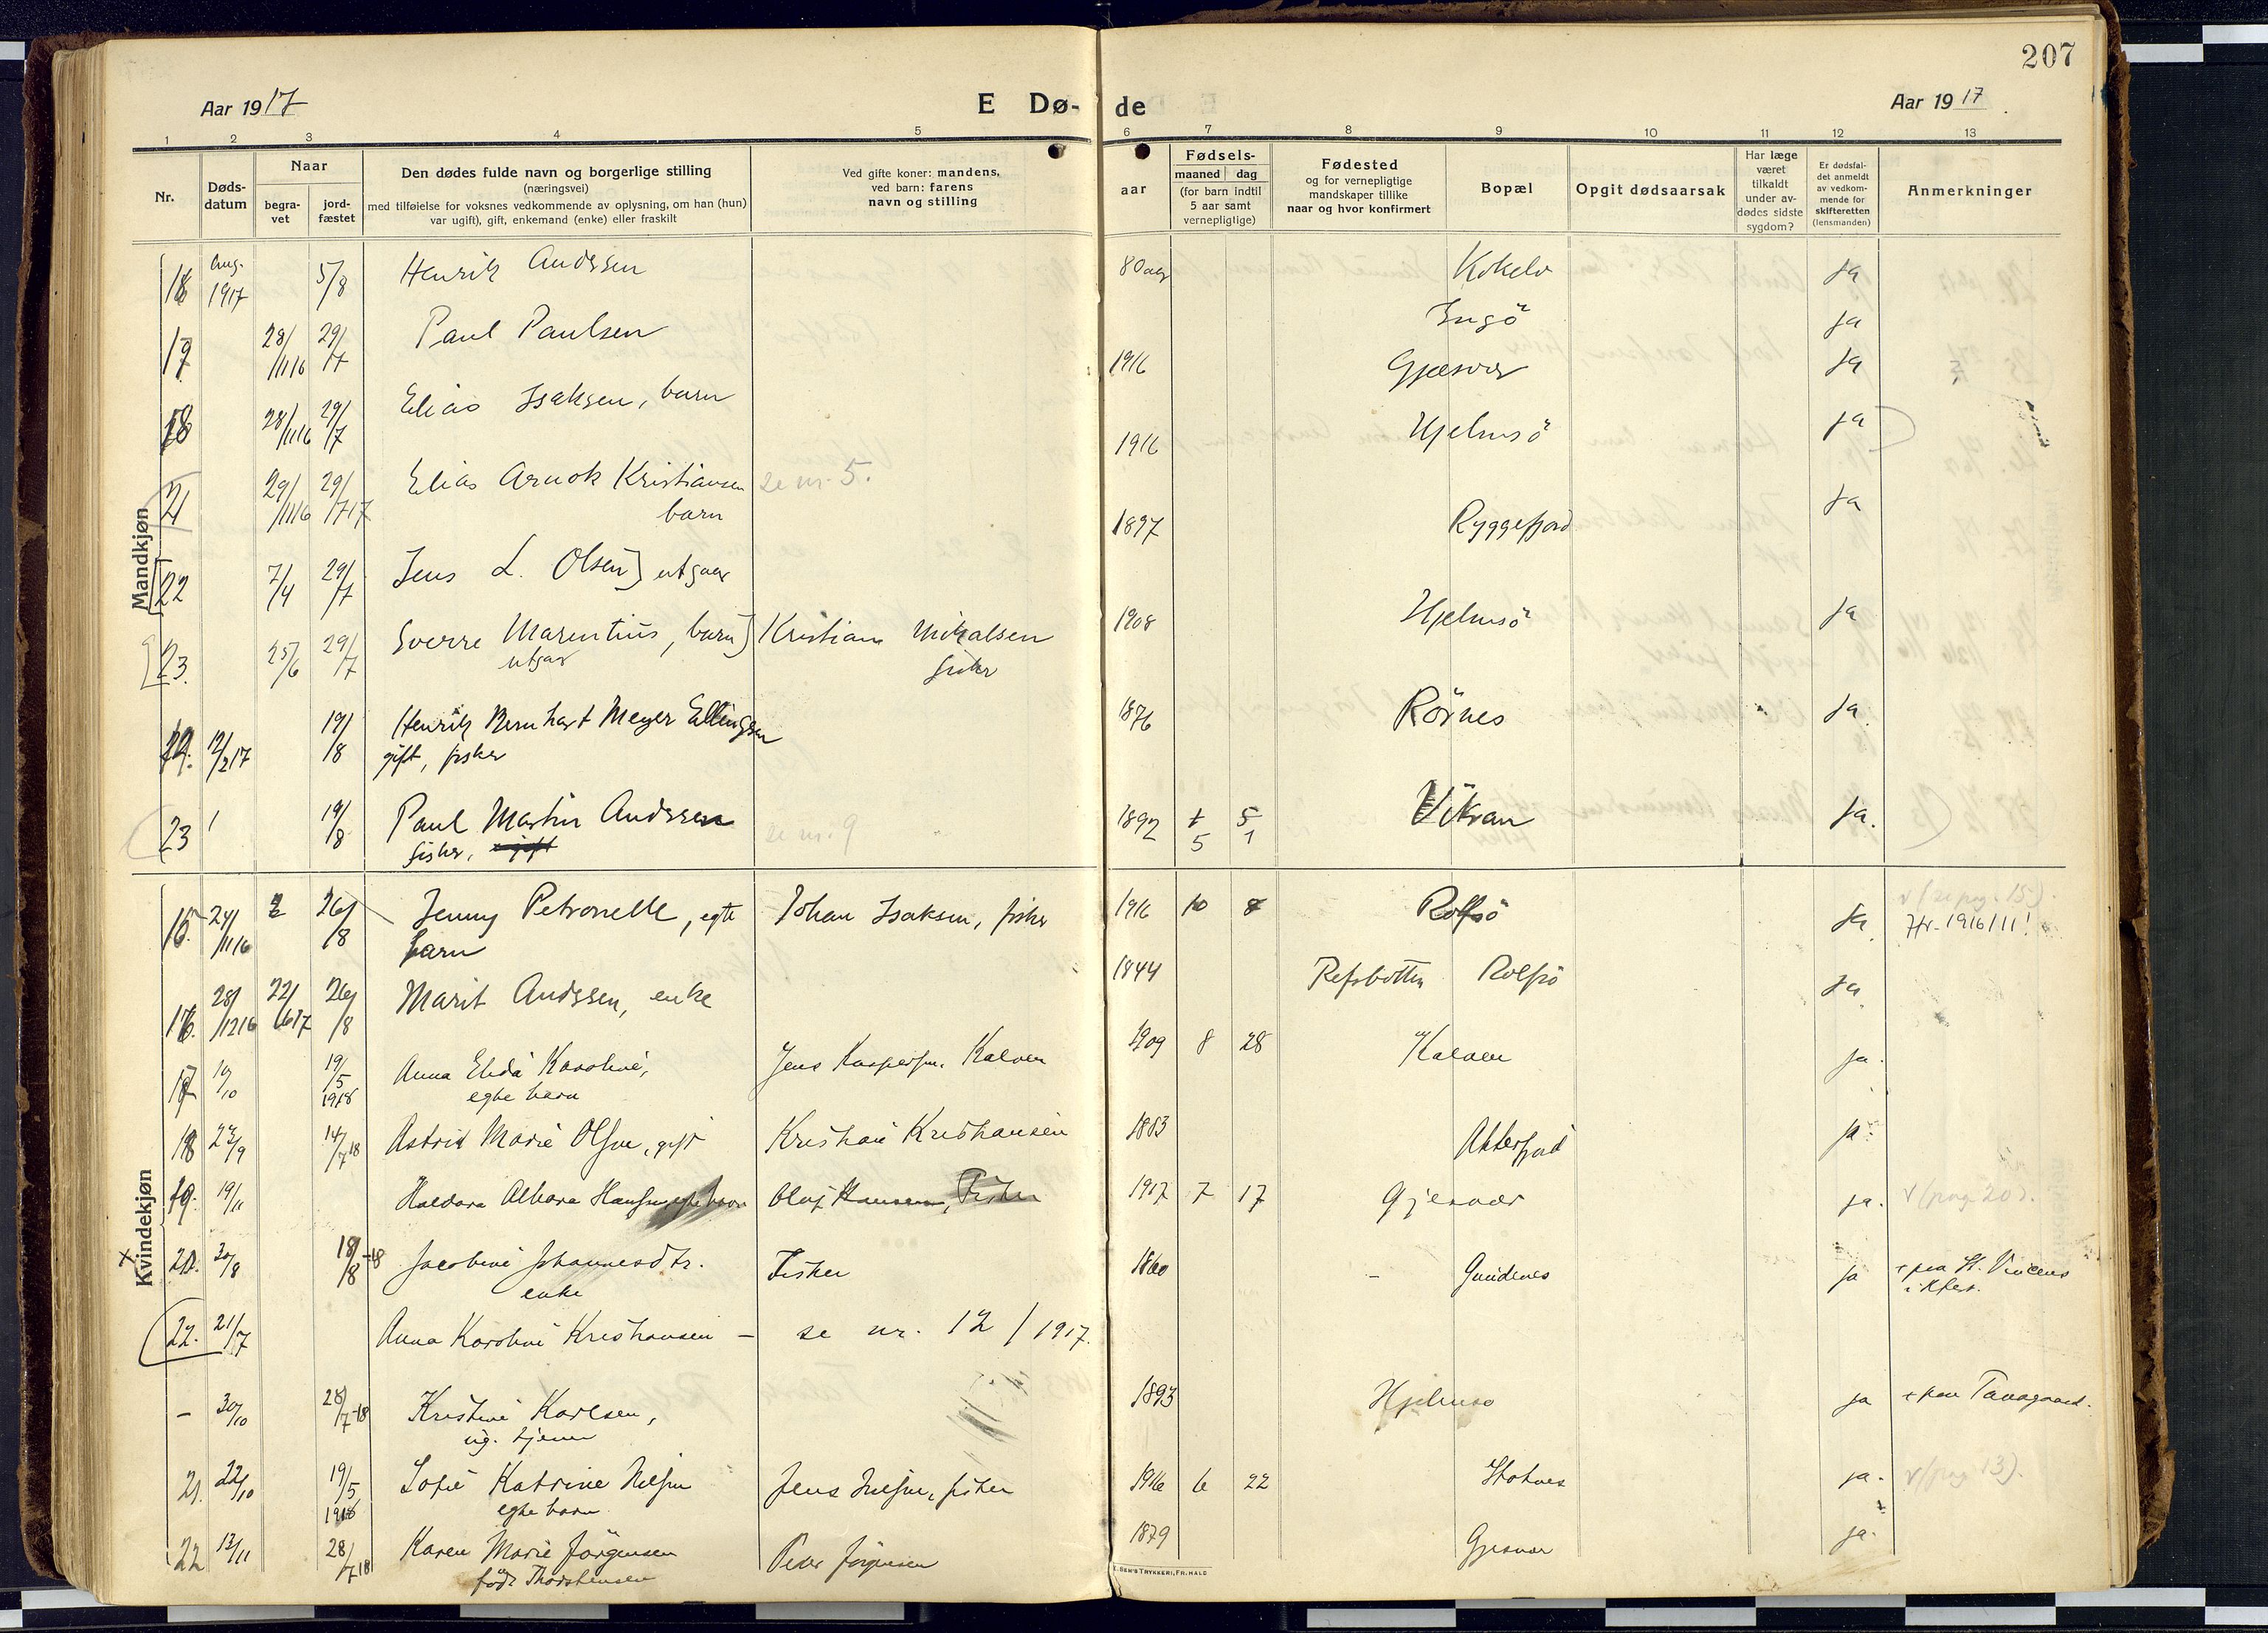 207
Aar 1917
E Dø-
de
Aar 1917
1 2 3 4 5 6 7 8 9 10 11 12 13
Nr.
Døds-
datum
Naar
begra-
vet
jord-
fæstet
Den dødes fulde navn og borgerlige stilling
(næringsvei)
med tilføielse for voksnes vedkommende av oplysning, om han (hun)
var ugift), gift, enkemand (enke) eller fraskilt
Ved gifte koner: mandens,
ved barn: farens
navn og stilling
aar
Fødsels-
maaned dag
(for barn indtil
5 aar samt
vernepligtige)
Fødested
og for vernepligtige
mandskaper tillike
naar og hvor konfirmert
Bopæl
Opgit dødsaarsak
Har læge
været
tilkaldt
under av-
dødes sidste
sygdom?
Er dødsfal-
det anmeldt
av vedkom-
mende for
skifteretten
(lensmanden)
Anmerkninger
Mandkjøn
Aug. 1917 5/8 Henrik Andssen 80 aar Kokelv ja
17 28/11 16 29/7 Paul Paulsen 1916 Ingö ja
Gjæsvær ja
18 28/11 16 29/7 Elias Isaksen, barn 1916 Hjelmsö ja
21 29/11 16 29/7 17 Elias Arnok Kristiansen se nr. 5.
barn 1897 Ryggefjord ja
22 7/4 29/7 Jens L. Olsen] utgaar
23. 25/6 29/7 Sverre Marentius, barn] Kristian Mikalsen 1908 Hjelmsö ja
utgar fisker
12/2 17 19/8 Henrik Bernhart Meyer Ellingsen 1876 Rörnes ja.
gift, fisker
23 19/8 Paul Martin Andssen se nr. 9 1892 5 1 Vikran ja.
fisker,
Kvindekjøn
15 24/11 16 26/8 Jenny Petronelle, egte Johan Isaksen, fisker 1916 10 8 Rolfsö ja. v (se pag. 15).
barn Hr. 1916/11!
16. 28/12 16 22/6 17 26/8 Marit Andssen, enke 1844 Refsbotten Rolfsö ja.
17 10/10 19/5 1918 Anna Elida Karoline, Jens Kaspersen. Kalven 1909 8 28 Kalven ja.
egte barn
18 14/7 18 Astrid Marie Olsen, gift Kristian Kristiansen 1883 Akkerfjord ja.
19. 19/11 Haldora Albara Hansen egte barn Oluf Hansen, Fisker 1917 7 17 Gjesvær ja. v (pag 20).
20. 30/8 18/8 -18 Jacobine Johannesdtr. Fisker 1860 - Gunidnes ja
enke
22. 21/7 Anna Karoline Kristiansen - se nr. 12 / 1917.
- 30/10 28/7 -18 Kristine Karlsen, 1893 Hjelmsø ja
ug. tjener
21. 22/10 19/5 1918 Sofie Katrine Nilsen Jens Nilsen, fisker 1916 6 22 ja. v (pag 13).
egte barn
22 13/11 28/7 18 Karen Marie Jörgensen Peder Jörgensen 1879 Gjesvær ja.
född Thorstensen